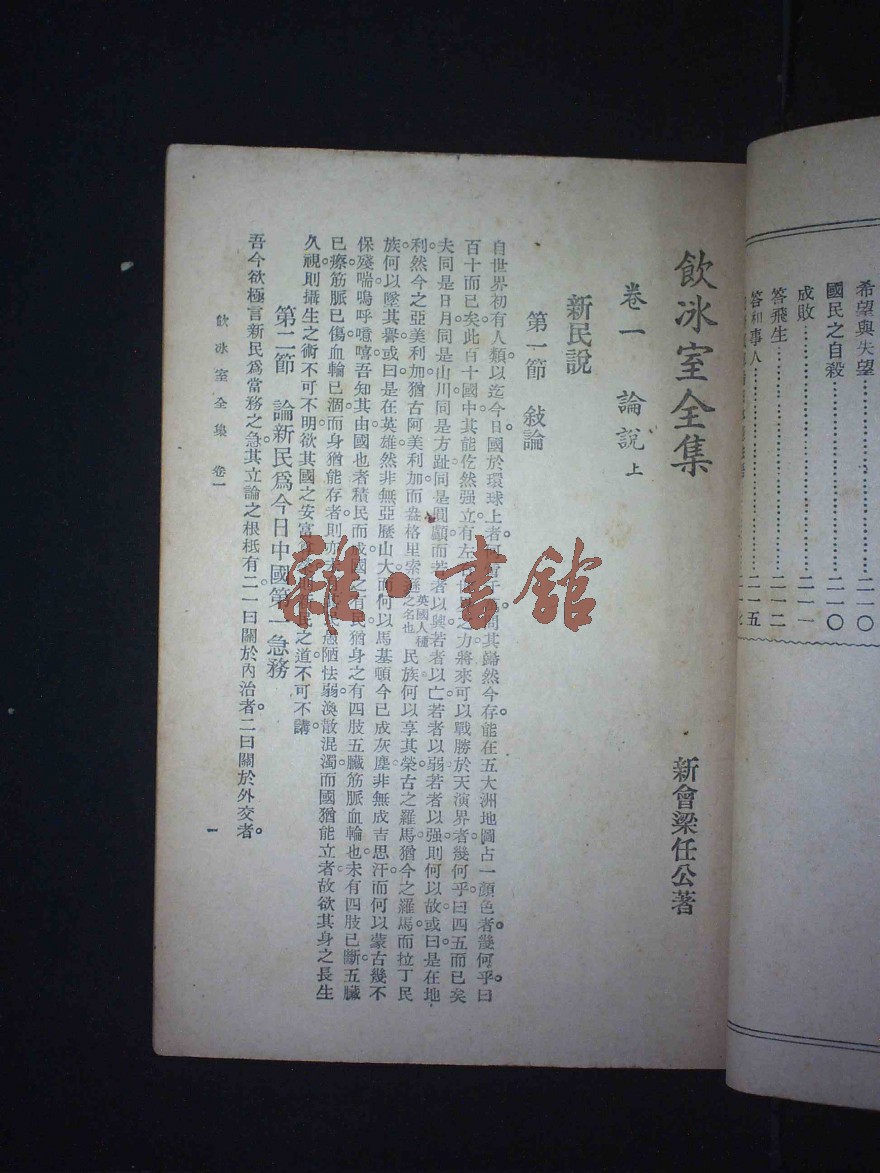 希望與失望……二一〇
國民之自殺……二一〇
成敗……二一一
答飛生……二一二
答和事人……二一五
飲冰室全集
新會梁任公著
卷一 論說 上
新民說
第一節 敍論
自世界初有人類以迄今日。國於環球上者。問其巋然今存能在五大洲地圖占一顏色者。幾何乎。曰
百十而已矣。此百十國中。其能屹然强立。有左之力。將來可以戰勝於天演界者。幾何乎。曰四五而已矣
夫同是日月。同是山川。同是方趾。同是圓顱。而若者以興。若者以亡。若者以弱。若者以强。則何以故。或曰是在地
利。然今之亞美利加。猶古阿美利加。而盎格里索遜英國人種之名也民族何以享其榮。古之羅馬。猶今之羅馬。而拉丁民
族何以墜其譽。或曰是在英雄。然非無亞歷山大。而何以馬基頓今已成灰塵。非無成吉思汗。而何以蒙古幾不
保殘喘。嗚呼噫嘻。吾知其由。國也者積民而成。國之有民。猶身之有四肢五臟筋脈血輪也。未有四肢已斷。五臟
已瘵。筋脈已傷。血輪已涸。而身猶能存者。則亦民愚陋怯弱渙散混濁。而國猶能立者。故欲其身之長生
久視。則攝生之術不可不明。欲其國之安富之道不可不講。
第二節 論新民爲今日中國第一急務
吾今欲極言新民爲當務之急。其立論之根柢有二。一曰關於內治者。二曰關於外交者。
飲冰室全集 卷一
一
雜·書館